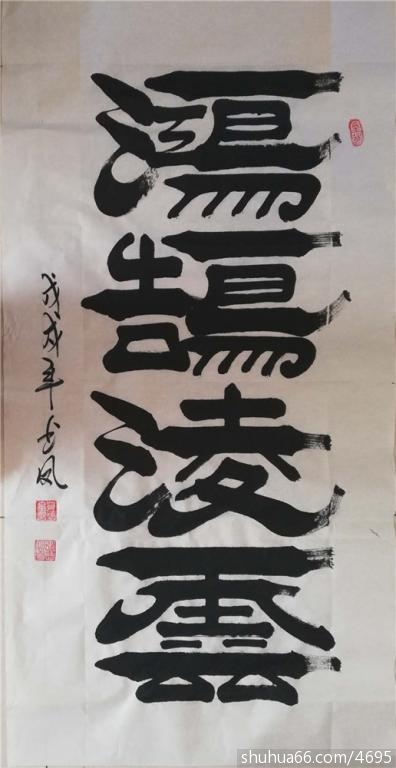 鴻鵠凌雲
戊戌年
shuhua66.com/4695